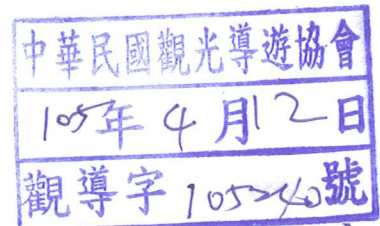 中華民國觀光導遊協會
105年4月12日
觀導字105240號